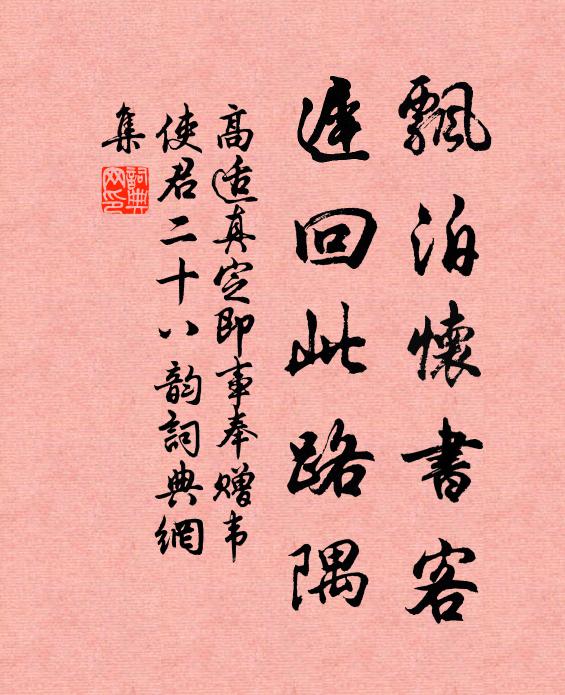 飄泊懷書客
遲回此路隅
高适真定即事奉赠韦
使君二十八韵詞典網
集
詞典
网印